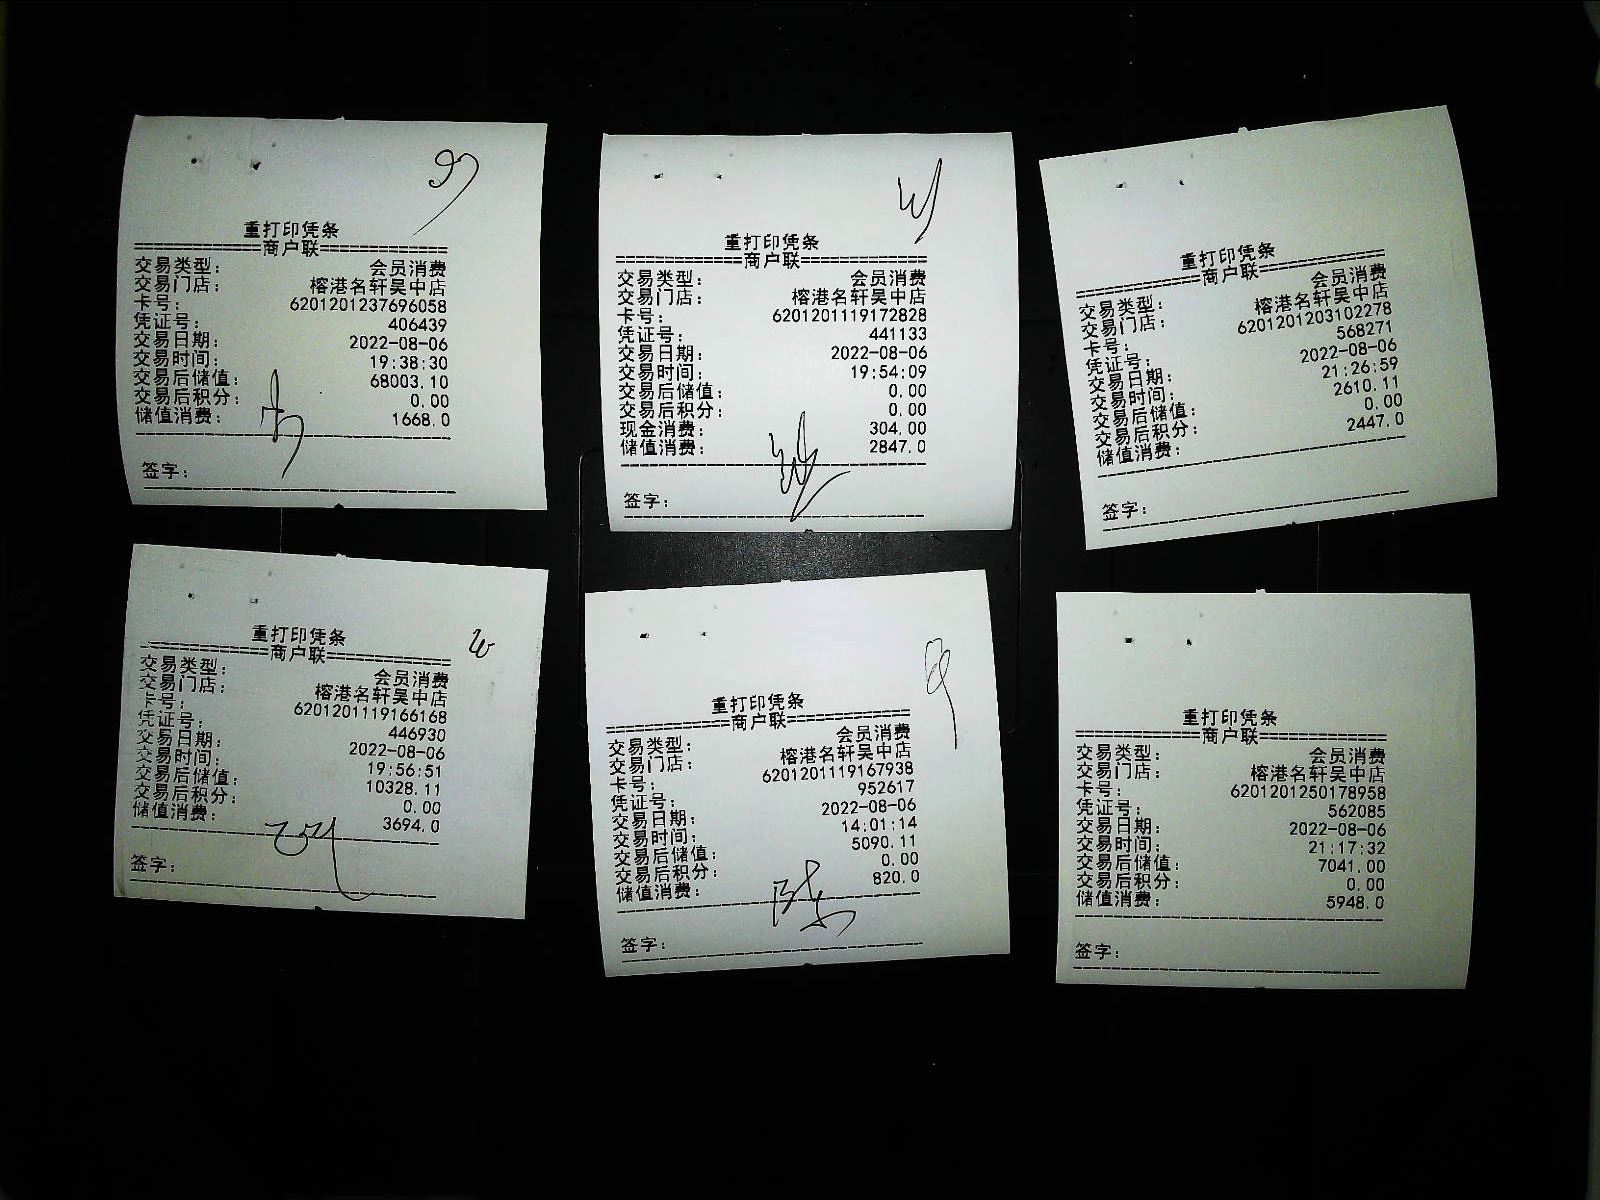 重打印凭条
=============商户联=============
交易类型: 会员消费
交易门店: 榕港名轩吴中店
卡号: 6201201237696058
凭证号: 406439
交易日期: 2022-08-06
交易时间: 19:38:30
交易后储值: 68003.10
交易后积分: 0.00
储值消费: 1668.0
签字:
重打印凭条
=============商户联=============
交易类型: 会员消费
交易门店: 榕港名轩吴中店
卡号: 6201201119172828
凭证号: 441133
交易日期: 2022-08-06
交易时间: 19:54:09
交易后储值: 0.00
交易后积分: 0.00
现金消费: 304.00
储值消费: 2847.0
签字:
重打印凭条
=============商户联=============
交易类型: 会员消费
交易门店: 榕港名轩吴中店
卡号: 6201201203102278
凭证号: 568271
交易日期: 2022-08-06
交易时间: 21:26:59
交易后储值: 2610.11
交易后积分: 0.00
储值消费: 2447.0
签字:
重打印凭条
=============商户联=============
交易类型: 会员消费
交易门店: 榕港名轩吴中店
卡号: 6201201119166168
凭证号: 446930
交易日期: 2022-08-06
交易时间: 19:56:51
交易后储值: 10328.11
交易后积分: 0.00
储值消费: 3694.0
签字:
重打印凭条
=============商户联=============
交易类型: 会员消费
交易门店: 榕港名轩吴中店
卡号: 6201201119167938
凭证号: 952617
交易日期: 2022-08-06
交易时间: 14:01:14
交易后储值: 5090.11
交易后积分: 0.00
储值消费: 820.0
签字:
重打印凭条
=============商户联=============
交易类型: 会员消费
交易门店: 榕港名轩吴中店
卡号: 6201201250178958
凭证号: 562085
交易日期: 2022-08-06
交易时间: 21:17:32
交易后储值: 7041.00
交易后积分: 0.00
储值消费: 5948.0
签字: